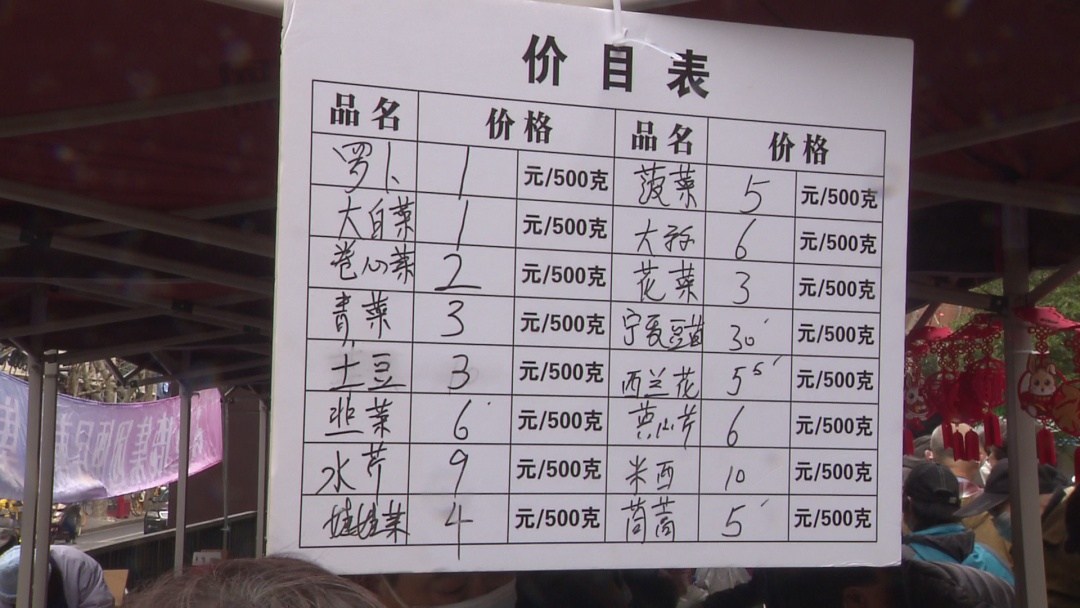 价目表
品名 价格 品名 价格
罗卜 1 元/500克 菠菜 5 元/500克
大白菜 1 元/500克 大 6 元/500克
卷心菜 2 元/500克 花菜 3 元/500克
青菜 3 元/500克 宁夏豆苗 30 元/500克
土豆 3 元/500克 西兰花 5⁵ 元/500克
韭菜 6 元/500克 黄心芹 6 元/500克
水芹 9 元/500克 米西 10 元/500克
娃娃菜 4 元/500克 茼蒿 5 元/500克